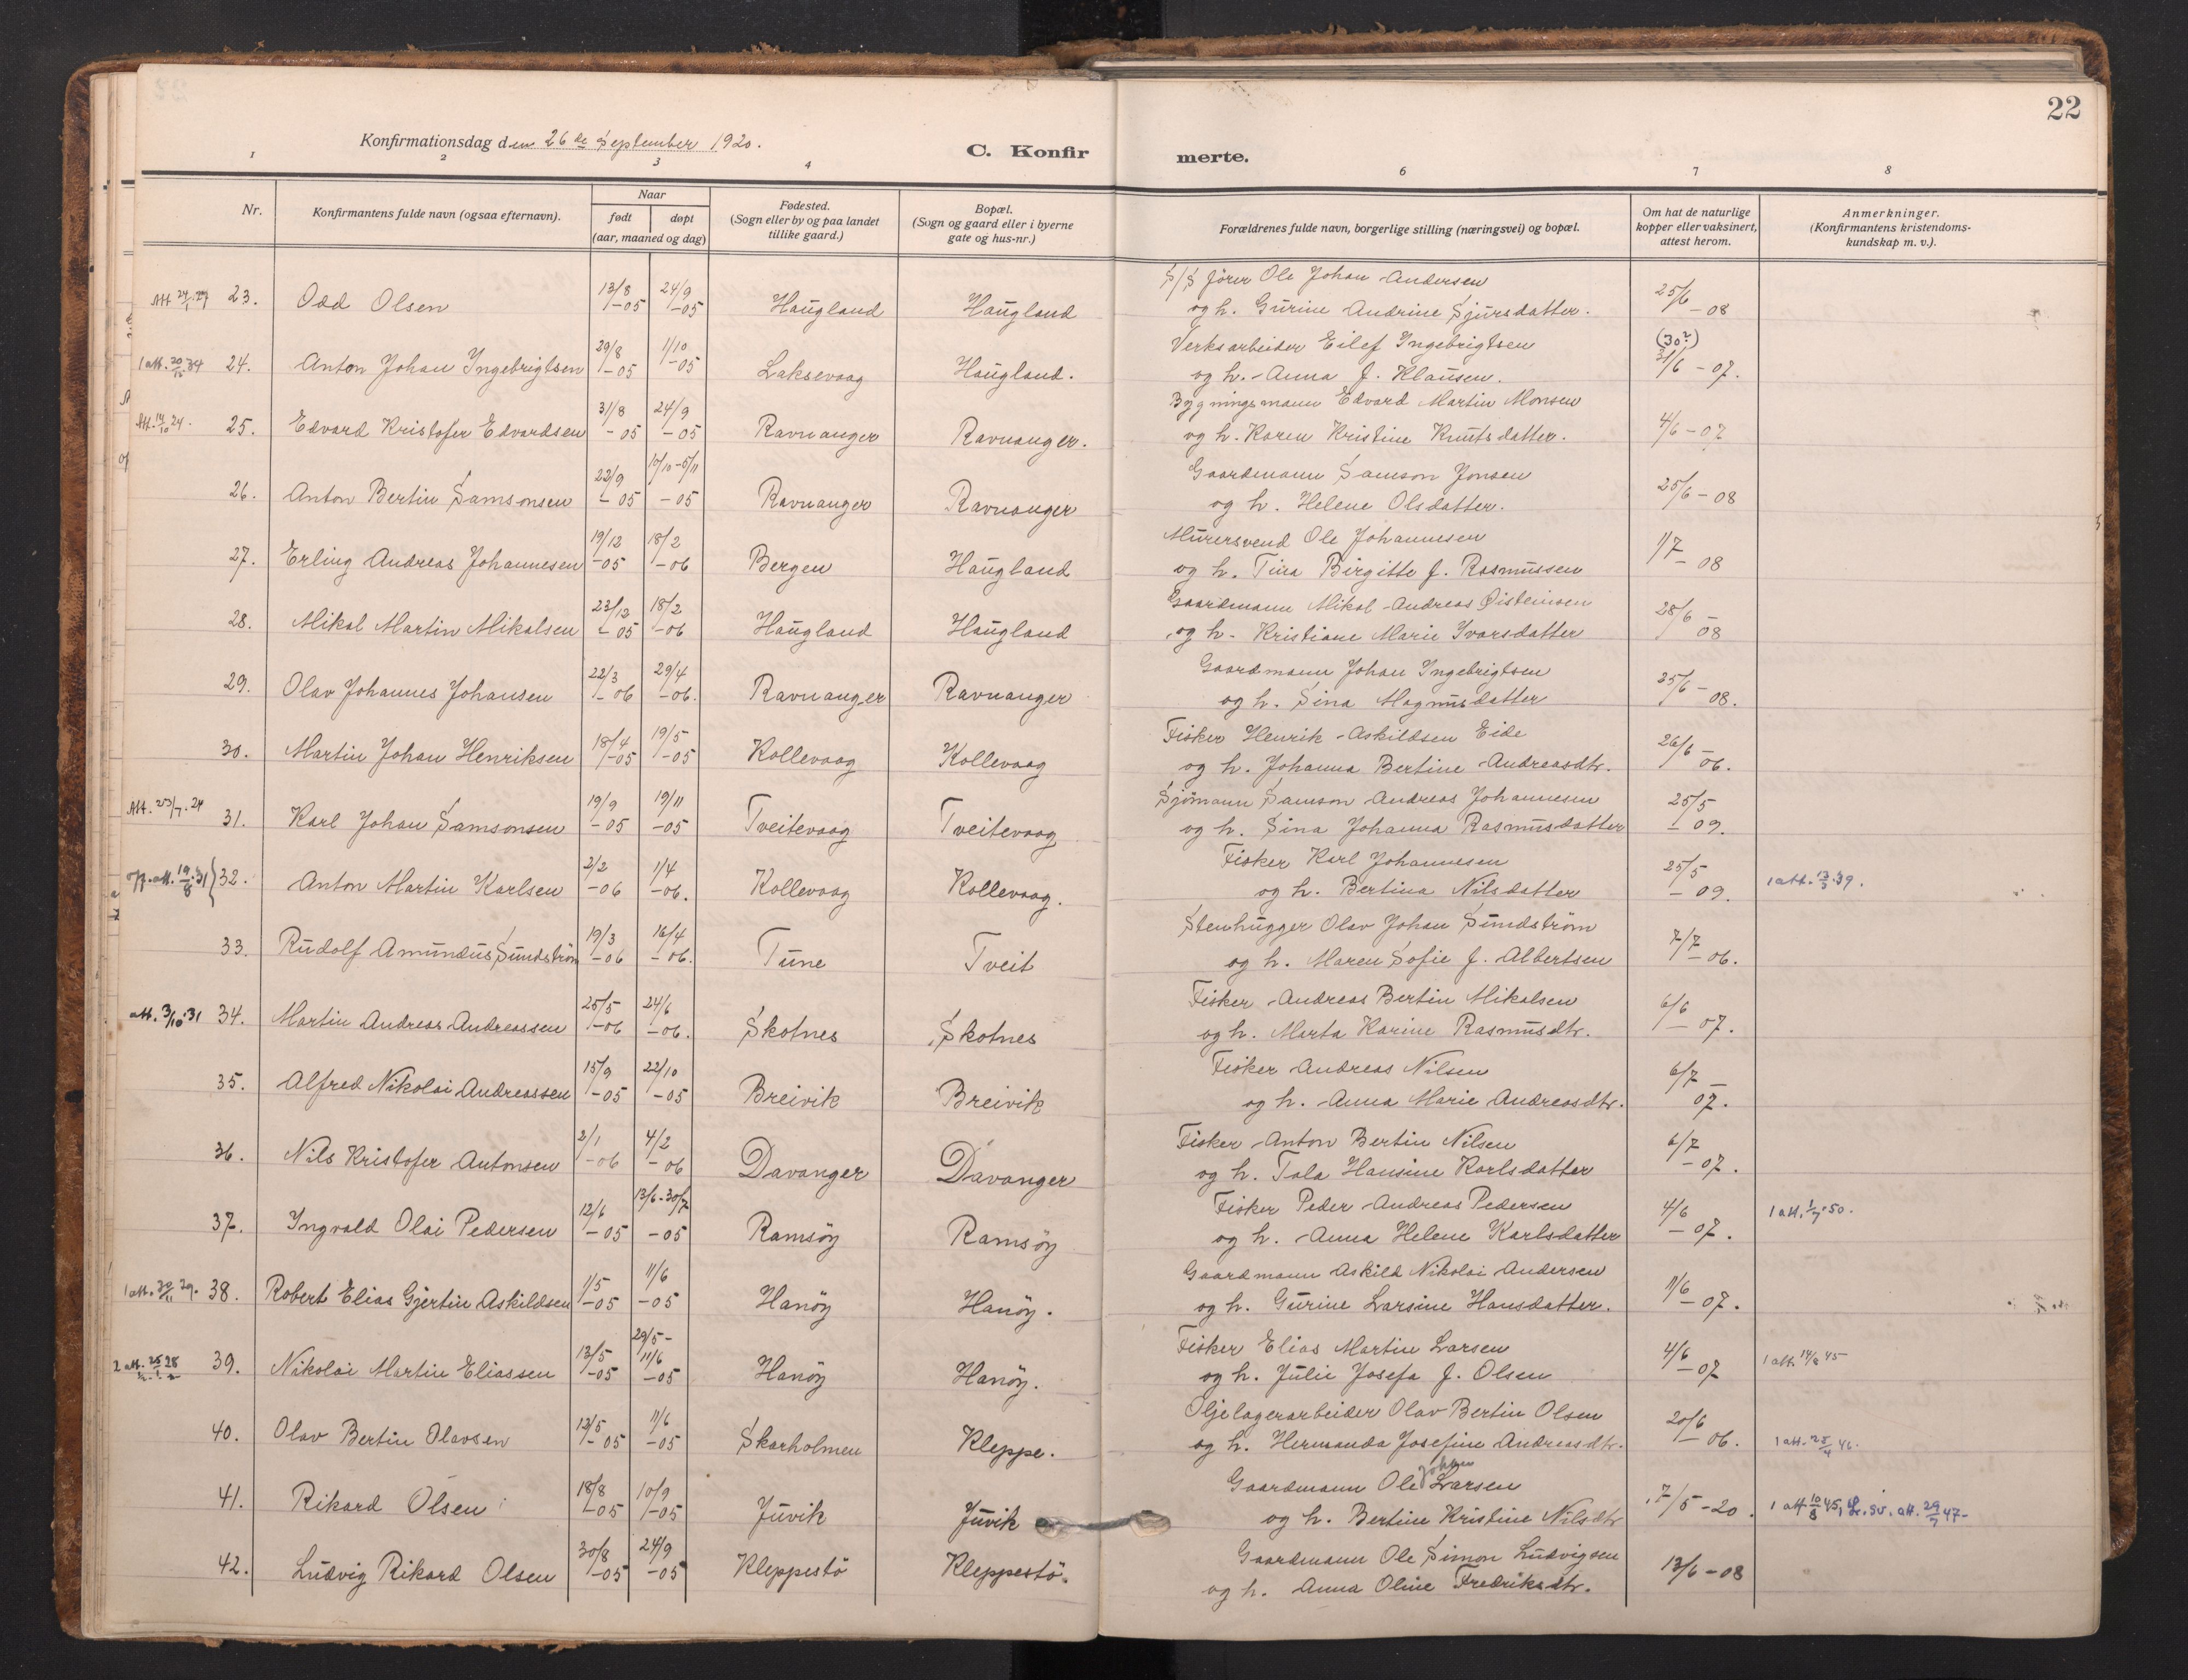 22
Konfirmationsdag den 26de September 1920.
C. Konfir
merte.
1 2 3 4 6 7 8
Nr.
Konfirmantens fulde navn (ogsaa efternavn).
Naar
født
døpt
(aar, maaned og dag)
Fødested.
(Sogn eller by og paa landet
tillike gaard.)
Bopæl.
(Sogn og gaard eller i byerne
gate og hus-nr.)
Forældrenes fulde navn, borgerlige stilling (næringsvei) og bopæl.
Om hat de naturlige
kopper eller vaksinert,
attest herom.
Anmerkninger.
(Konfirmantens kristendoms-
kundskap m. v.).
S/S förer Ole Johan Andersen
23. Odd Olsen 13/8 -05 24/9 -05 Haugland Haugland og h. Gurine Andrine Sjursdatter. 25/6 -08
Verksarbeider Eilef Ingebrigtsen (30?)
1 att. 24. Anton Johan Ingebrigtsen 29/8 -05 1/10 -05 Laksevaag Haugland. og h. Anna f. Klausen. 31/6 -07.
Bygningsmann Edvard Martin Monsen
Att. 14/10 24. 25. Edvard Kristofer Edvardsen 31/8 -05 24/9 -05 Ravnanger Ravnanger. og h. Karen Kristine Knutsdatter. 4/6 -07
Gaardmann Samson Jonsen
26. Anton Bertin Samsonsen 22/9 -05 10/10-5/11 -05 Ravnanger Ravnanger og h. Helene Olsdatter. 25/6 -08
Murersvend Ole Johannesen
27. Erling Andreas Johannesen 19/12 -05 18/2 -06 Bergen Haugland og h. Tina Birgitte f. Rasmussen 1/7 -08
Gaardmann Mikal Andreas Øisteinsen
28. Mikal Martin Mikalsen 23/12 -05 18/2 -06 Haugland Haugland og h. Kristiane Marie Ivarsdatter 28/6 -08
Gaardmann Johan Ingebrigtsen
29. Olav Johannes Johansen 22/3 -06 29/4 -06. Ravnanger Ravnanger og h. Sina Magnusdatter 25/6 -08.
Fisker Henrik Askildsen Eide
30. Martin Johan Henriksen 18/4 -05 19/5 -05 Kollevaag Kollevaag og h. Johanna Bertine Andreasdtr. 26/6 -06.
Sjömann Samson Andreas Johannesen
Att. 23/7. 24 31. Karl Johan Samsonsen 19/9 -05 19/11 -05 Tveitevaag Tveitevaag og h. Sina Johanna Rasmusdatter 25/5 -09.
Fisker Karl Johannesen
att. 19/8.31 } 32. Anton Martin Karlsen 2/2 -06 1/4 -06. Kollevaag Kollevaag. og h. Bertina Nilsdatter 25/5 -09. 1 att. 13/3.39.
Stenhugger Olav Johan Sundström
33. Rudolf Amundus Sundström 19/3 -06 16/4 -06. Tune Tveit og h. Maren Sofie f. Albertsen 7/7 -06.
Fisker Andreas Bertin Mikalsen
att. 3/10.31 34. Martin Andreas Andreassen 25/5 -06 24/6 -06. Skotnes Skotnes og h. Marta Karine Rasmusdtr. 6/6 -07.
Fisker Andreas Nilsen
35. Alfred Nikolai Andreassen 15/9 -05 22/10 -05 Breivik Breivik og h. Anna Marie Andreasdtr. 6/7 -07.
Fisker Anton Bertin Nilsen
36. Nils Kristofer Antonsen 2/1 -06 4/2 -06 Davanger Davanger og h. Tala Hansine Karlsdatter 6/7 -07.
Fisker Peder Andreas Pedersen
37. Ingvald Olai Pedersen 12/6 -05 13/6-30/7 -05 Ramsöy Ramsöy og h. Anna Helene Karlsdatter 4/6 -07. 1 att. 1/7.50.
Gaardmann Askild Nikolai Andersen
1 att. 30/11 29. 38. Robert Elias Gjertin Askildsen 1/5 -05 11/6 -05 Hanöy Hanöy. og h. Gurine Larsine Hansdatter. 11/6 -07.
Fisker Elias Martin Larsen
2 att. 28 39. Nikolai Martin Eliassen 13/5 -05 29/5-11/6 -05 Hanöy Hanöy. og h. Julie Josefa f. Olsen 4/6 -07 1 att. 14/8 45
Oljelagerarbeider Olav Bertin Olsen
40. Olav Bertin Olavsen 12/5 -05 11/6 -05 Skarholmen Kleppe. og h. Hermanda Josefine Andreasdtr. 20/6 -06. 1 att. 25/4 46.
Gaardmann Ole Johan Larsen
41. Rikard Olsen 18/8 -05 10/9 -05 Juvik Juvik og h. Bertine Kristine Nilsdtr. 7/5 -20. 1 att 10/8 45, att. 29/7 47-
Gaardmann Ole Simon Ludvigsen
42. Ludvig Rikard Olsen 30/8 -05 24/9 -05 Kleppestö Kleppestö. og h. Anna Oline Fredriksdtr. 13/6 -08